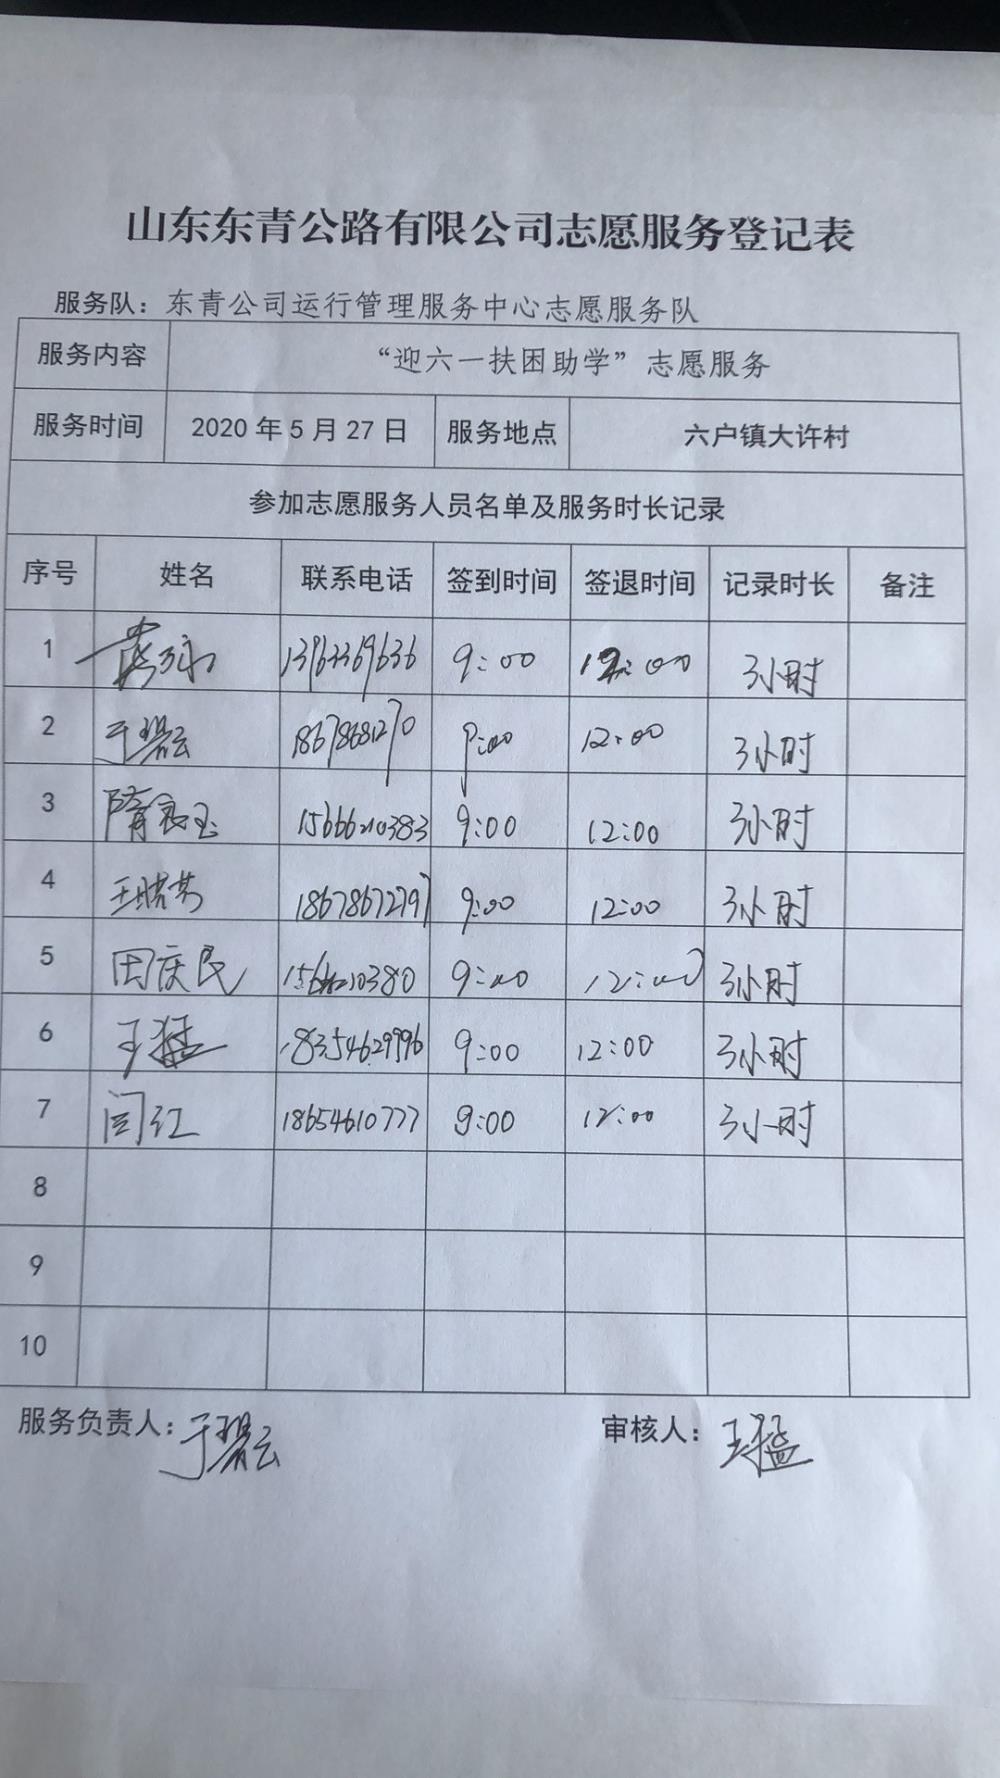 山东东青公路有限公司志愿服务登记表
服务队：东青公司运行管理服务中心志愿服务队
服务内容 “迎六一扶困助学”志愿服务
服务时间 2020年5月27日 服务地点 六户镇大许村
参加志愿服务人员名单及服务时长记录
序号 姓名 联系电话 签到时间 签退时间 记录时长 备注
1 9:00 12:00 3小时
2 于碧云 18678681270 9:00 12:00 3小时
3 隋良玉 15666210383 9:00 12:00 3小时
4 王晓芳 18678672797 9:00 12:00 3小时
5 田庆民 9:00 12:00 3小时
6 王猛 18354629996 9:00 12:00 3小时
7 闫红 18654610777 9:00 12:00 3小时
8
9
10
服务负责人：于碧云 审核人：王猛